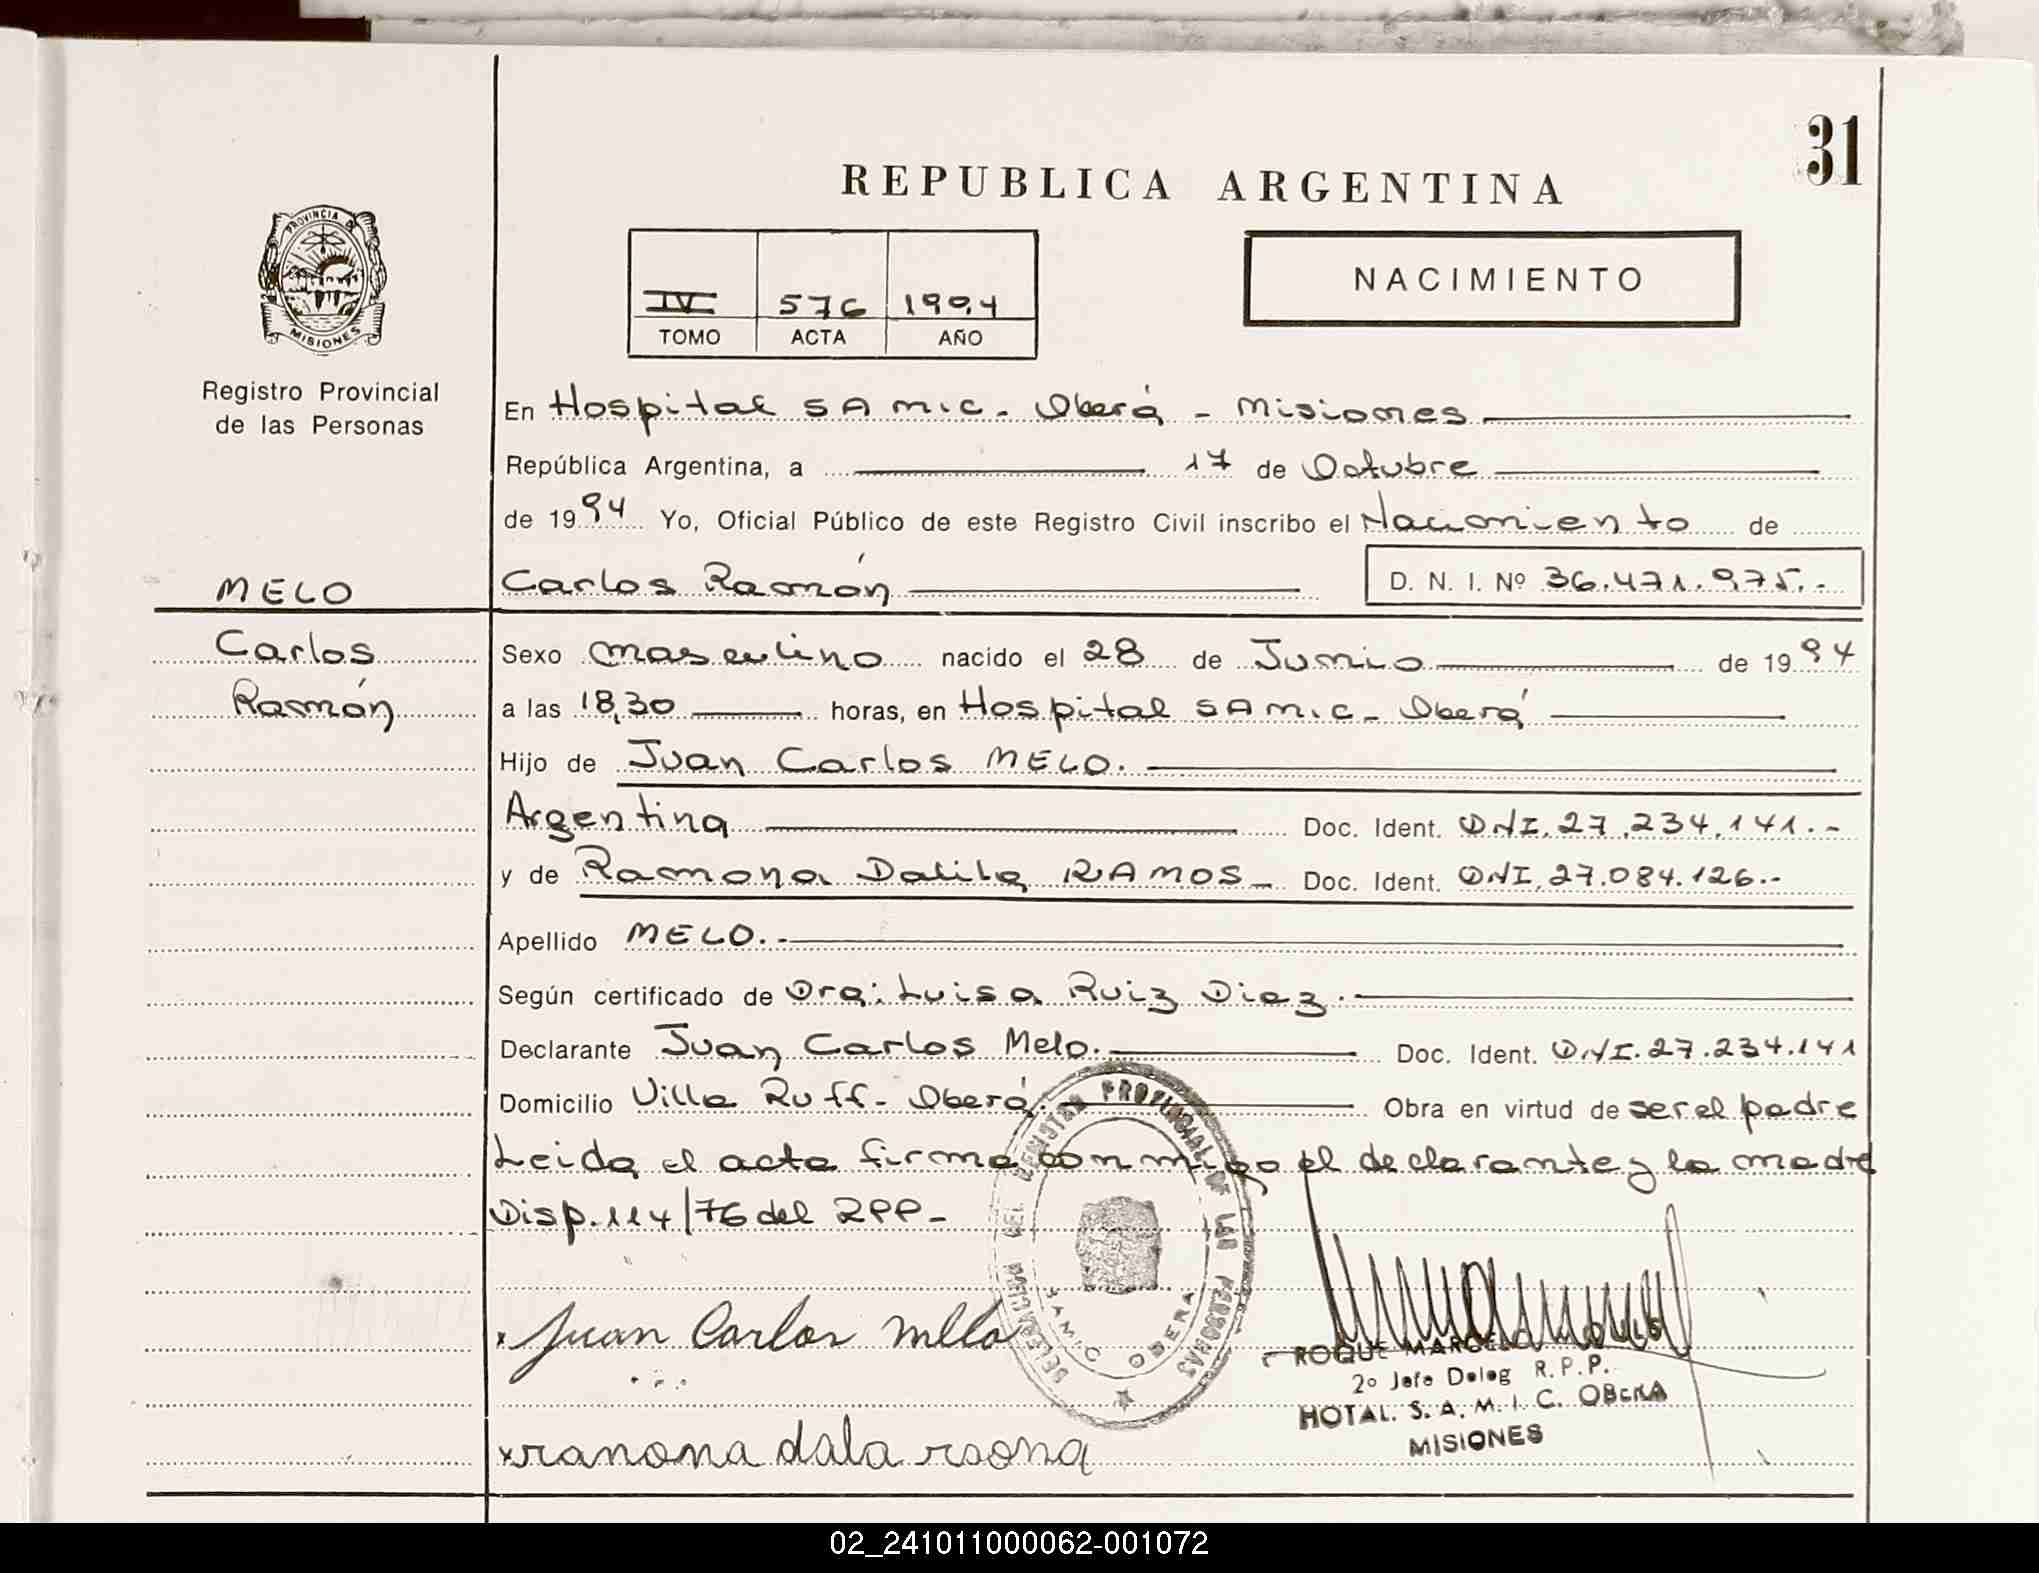 31
REPUBLICA ARGENTINA
PROVINCIA DE
MISIONES
IV 576 1994
TOMO ACTA AÑO
NACIMIENTO
Registro Provincial
de las Personas
En Hospital SAMIC - Oberá - Misiones
República Argentina, a 17 de Octubre
de 1994 Yo, Oficial Público de este Registro Civil inscribo el Nacimiento de
MELO
Carlos Ramón D. N. I. Nº 36.471.975.-
Carlos
Sexo masculino nacido el 28 de Junio de 1994
Ramón
a las 18,30 horas, en Hospital SAMIC - Oberá
Hijo de Juan Carlos MELO.
Argentina Doc. Ident. DNI. 27.234.141.-
y de Ramona Dalila RAMOS - Doc. Ident. DNI. 27.084.126.-
Apellido MELO.-
Según certificado de Dra: Luisa Ruiz Diaz.
Declarante Juan Carlos Melo. Doc. Ident. DNI. 27.234.141
Domicilio Villa Ruff - Oberá. Obra en virtud de ser el padre
Leida el acta firma conmigo el declarante y la madre
Disp. 114/76 del RPP-
DELEGACION DEL REGISTRO PROVINCIAL DE LAS PERSONAS
SAMIC OBERA
x Juan Carlos Mello
x ranona dala raona
ROQUE MARCELO
2º Jefe Deleg R.P.P.
HOTAL. S. A. M. I. C. OBERA
MISIONES
02_241011000062-001072